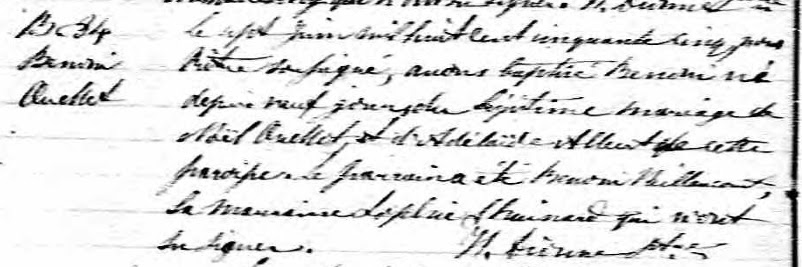 B. 34
Benoni
Ouellet
le sept juin mil huit cent cinquante cinq, nous
Prêtre soussigné, avons baptisé Benoni né
depuis neuf jours du légitime mariage de
Noël Ouellet, et d'Adélaïde Albert de cette
paroisse. Le parrain a été Benoni
la marraine Sophie Chuinard qui n'ont
su signer. Ptre